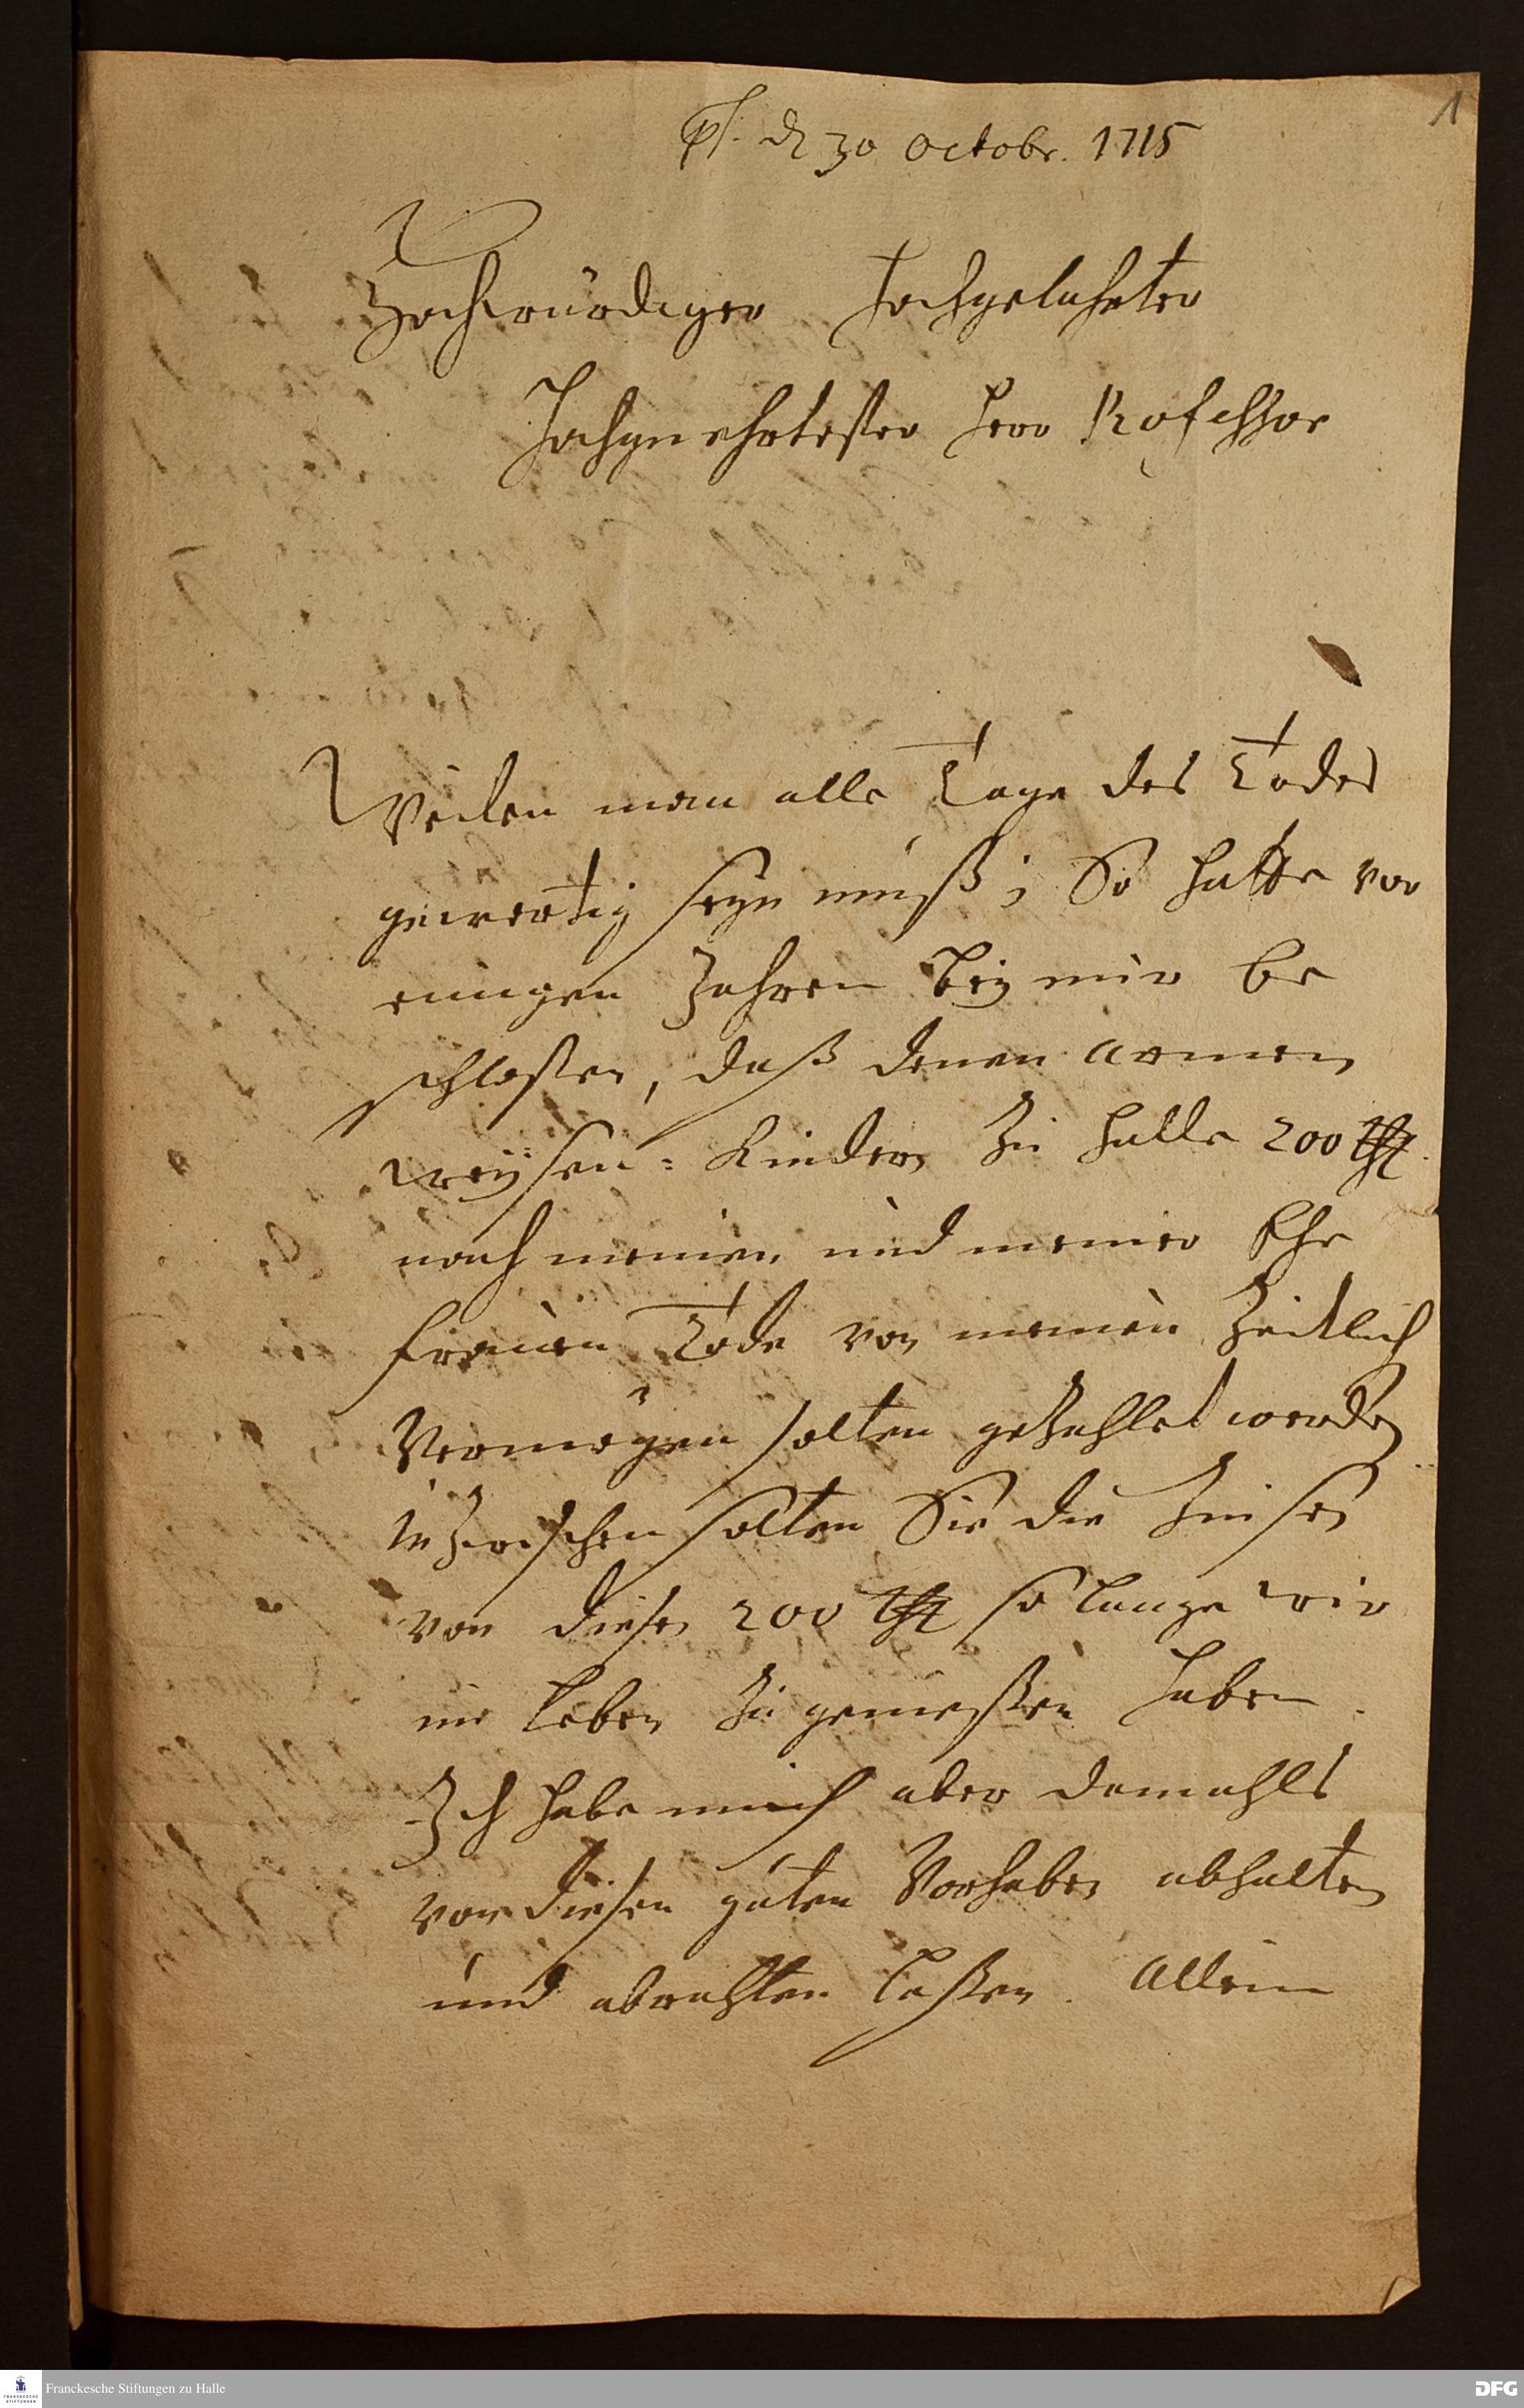 1
pſ. d 30 Octobr. 1715
Hochwürdiger Hochgelahrter
Hochgeehrtester Herr Professor
Weilen man alle Tage des Todes
gewertig seyn muß; So hatte vor
einigen Jahren bey mir be
schloßen, daß denen armen
weysen-Kindern zu Halle 200 thl.
nach meinen und meiner Ehe
frauen Tode von meinen Zeitlich
Vermögen solten gezahlet werden
inzwischen solten Sie die Zinsen
von diesen 200 thl so lange wir
im Leben zu genießen haben.
Ich habe mich aber damahls
von diesen guten Vorhaben abhalten
und abrahten laßen. Allein
Franckesche Stiftungen zu Halle
FRANCKESCHE
STIFTUNGEN
DFG